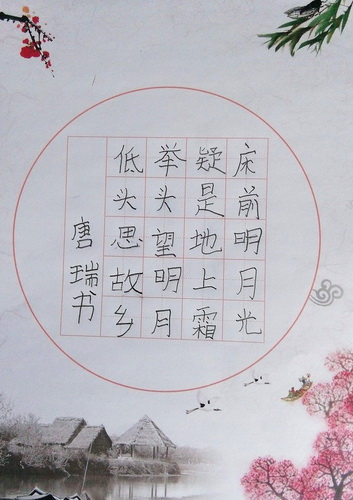 床前明月光
疑是地上霜
举头望明月
低头思故乡
唐瑞书